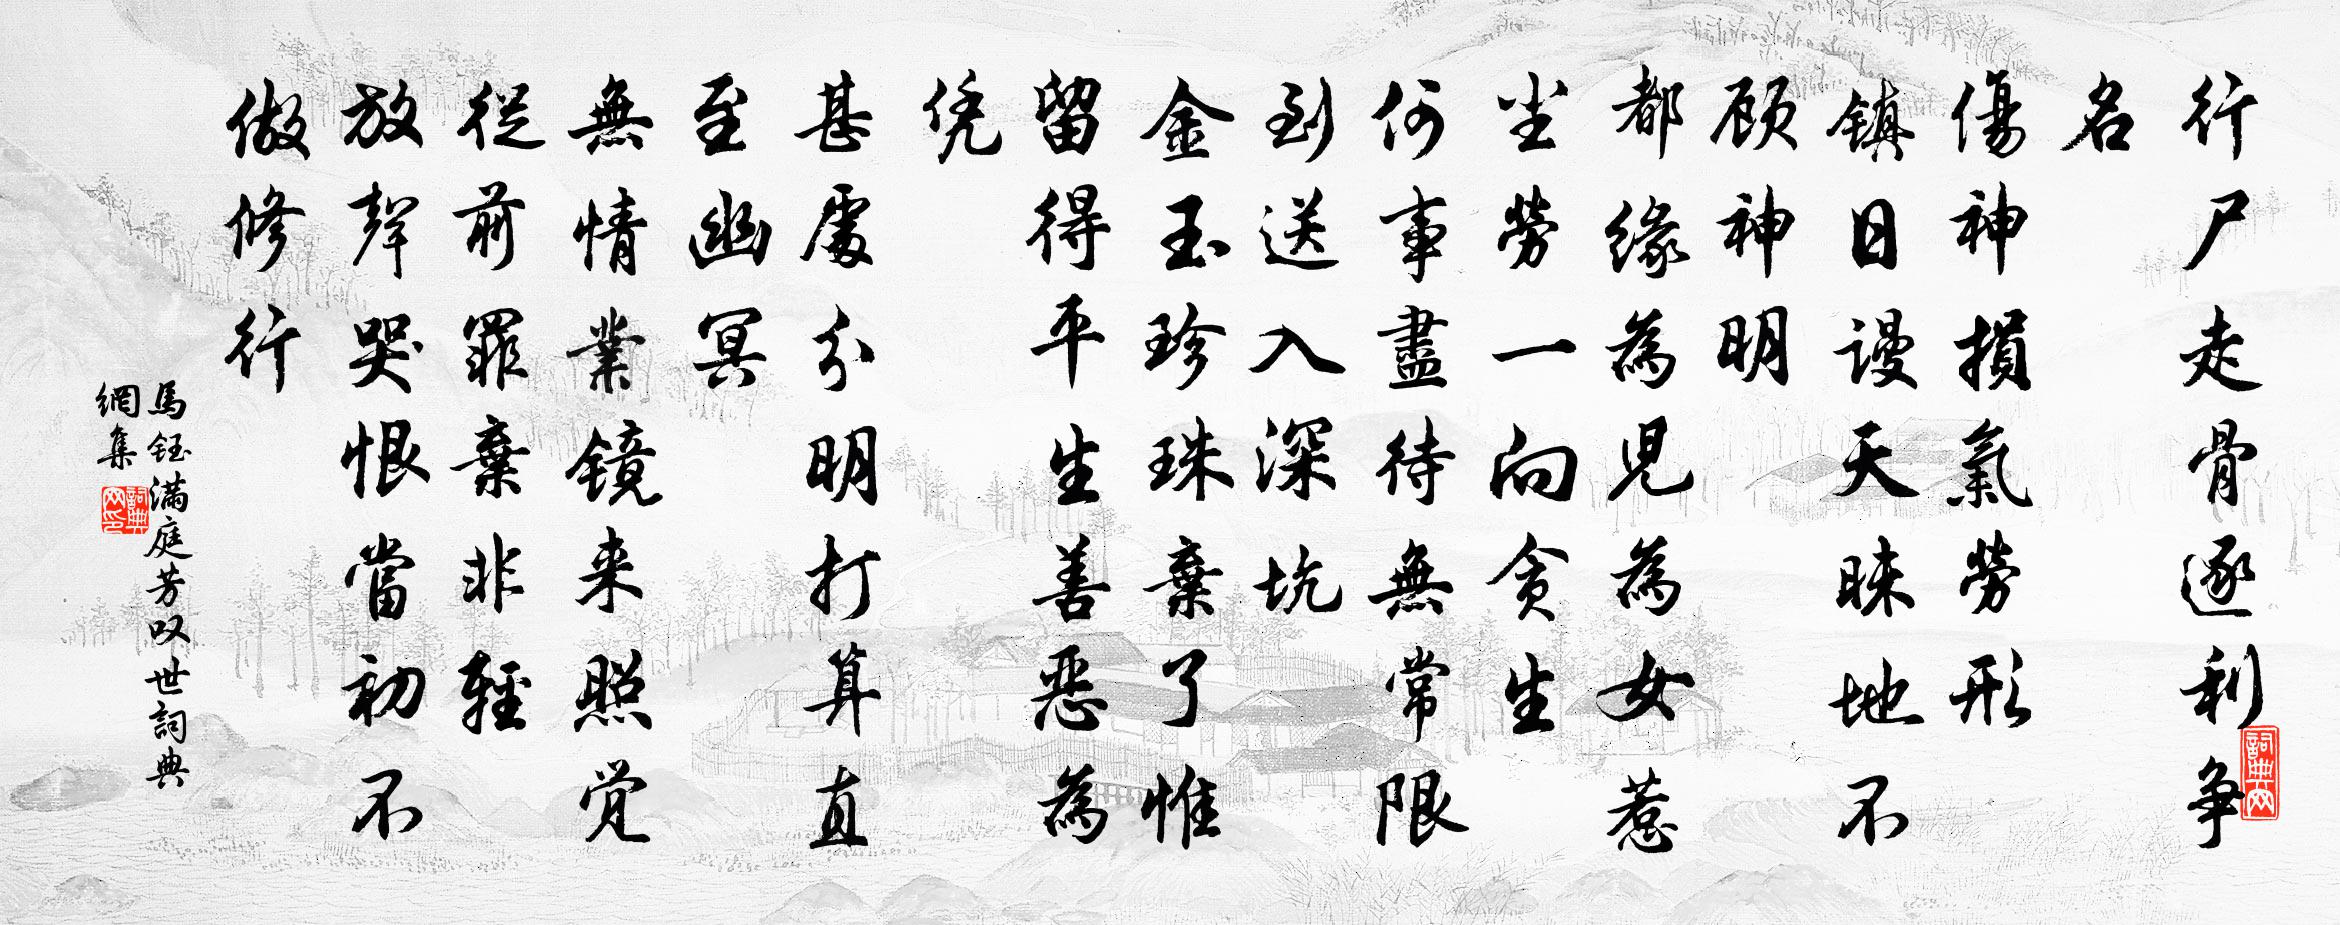 行尸走骨逐利争
名
傷神損氣勞形
镇日谩天昧地不
顾神明
都緣為児為女惹
尘勞一向贪生
何事盡待無常限
到送入深坑
金玉珍珠棄了惟
留得平生善惡為
凭
甚處分明打算直
至幽冥
無情業镜来照觉
從前罪棄非輕
放聲哭恨當初不
做修行
馬钰满庭芳叹世詞典
網集
詞典网
詞典网印